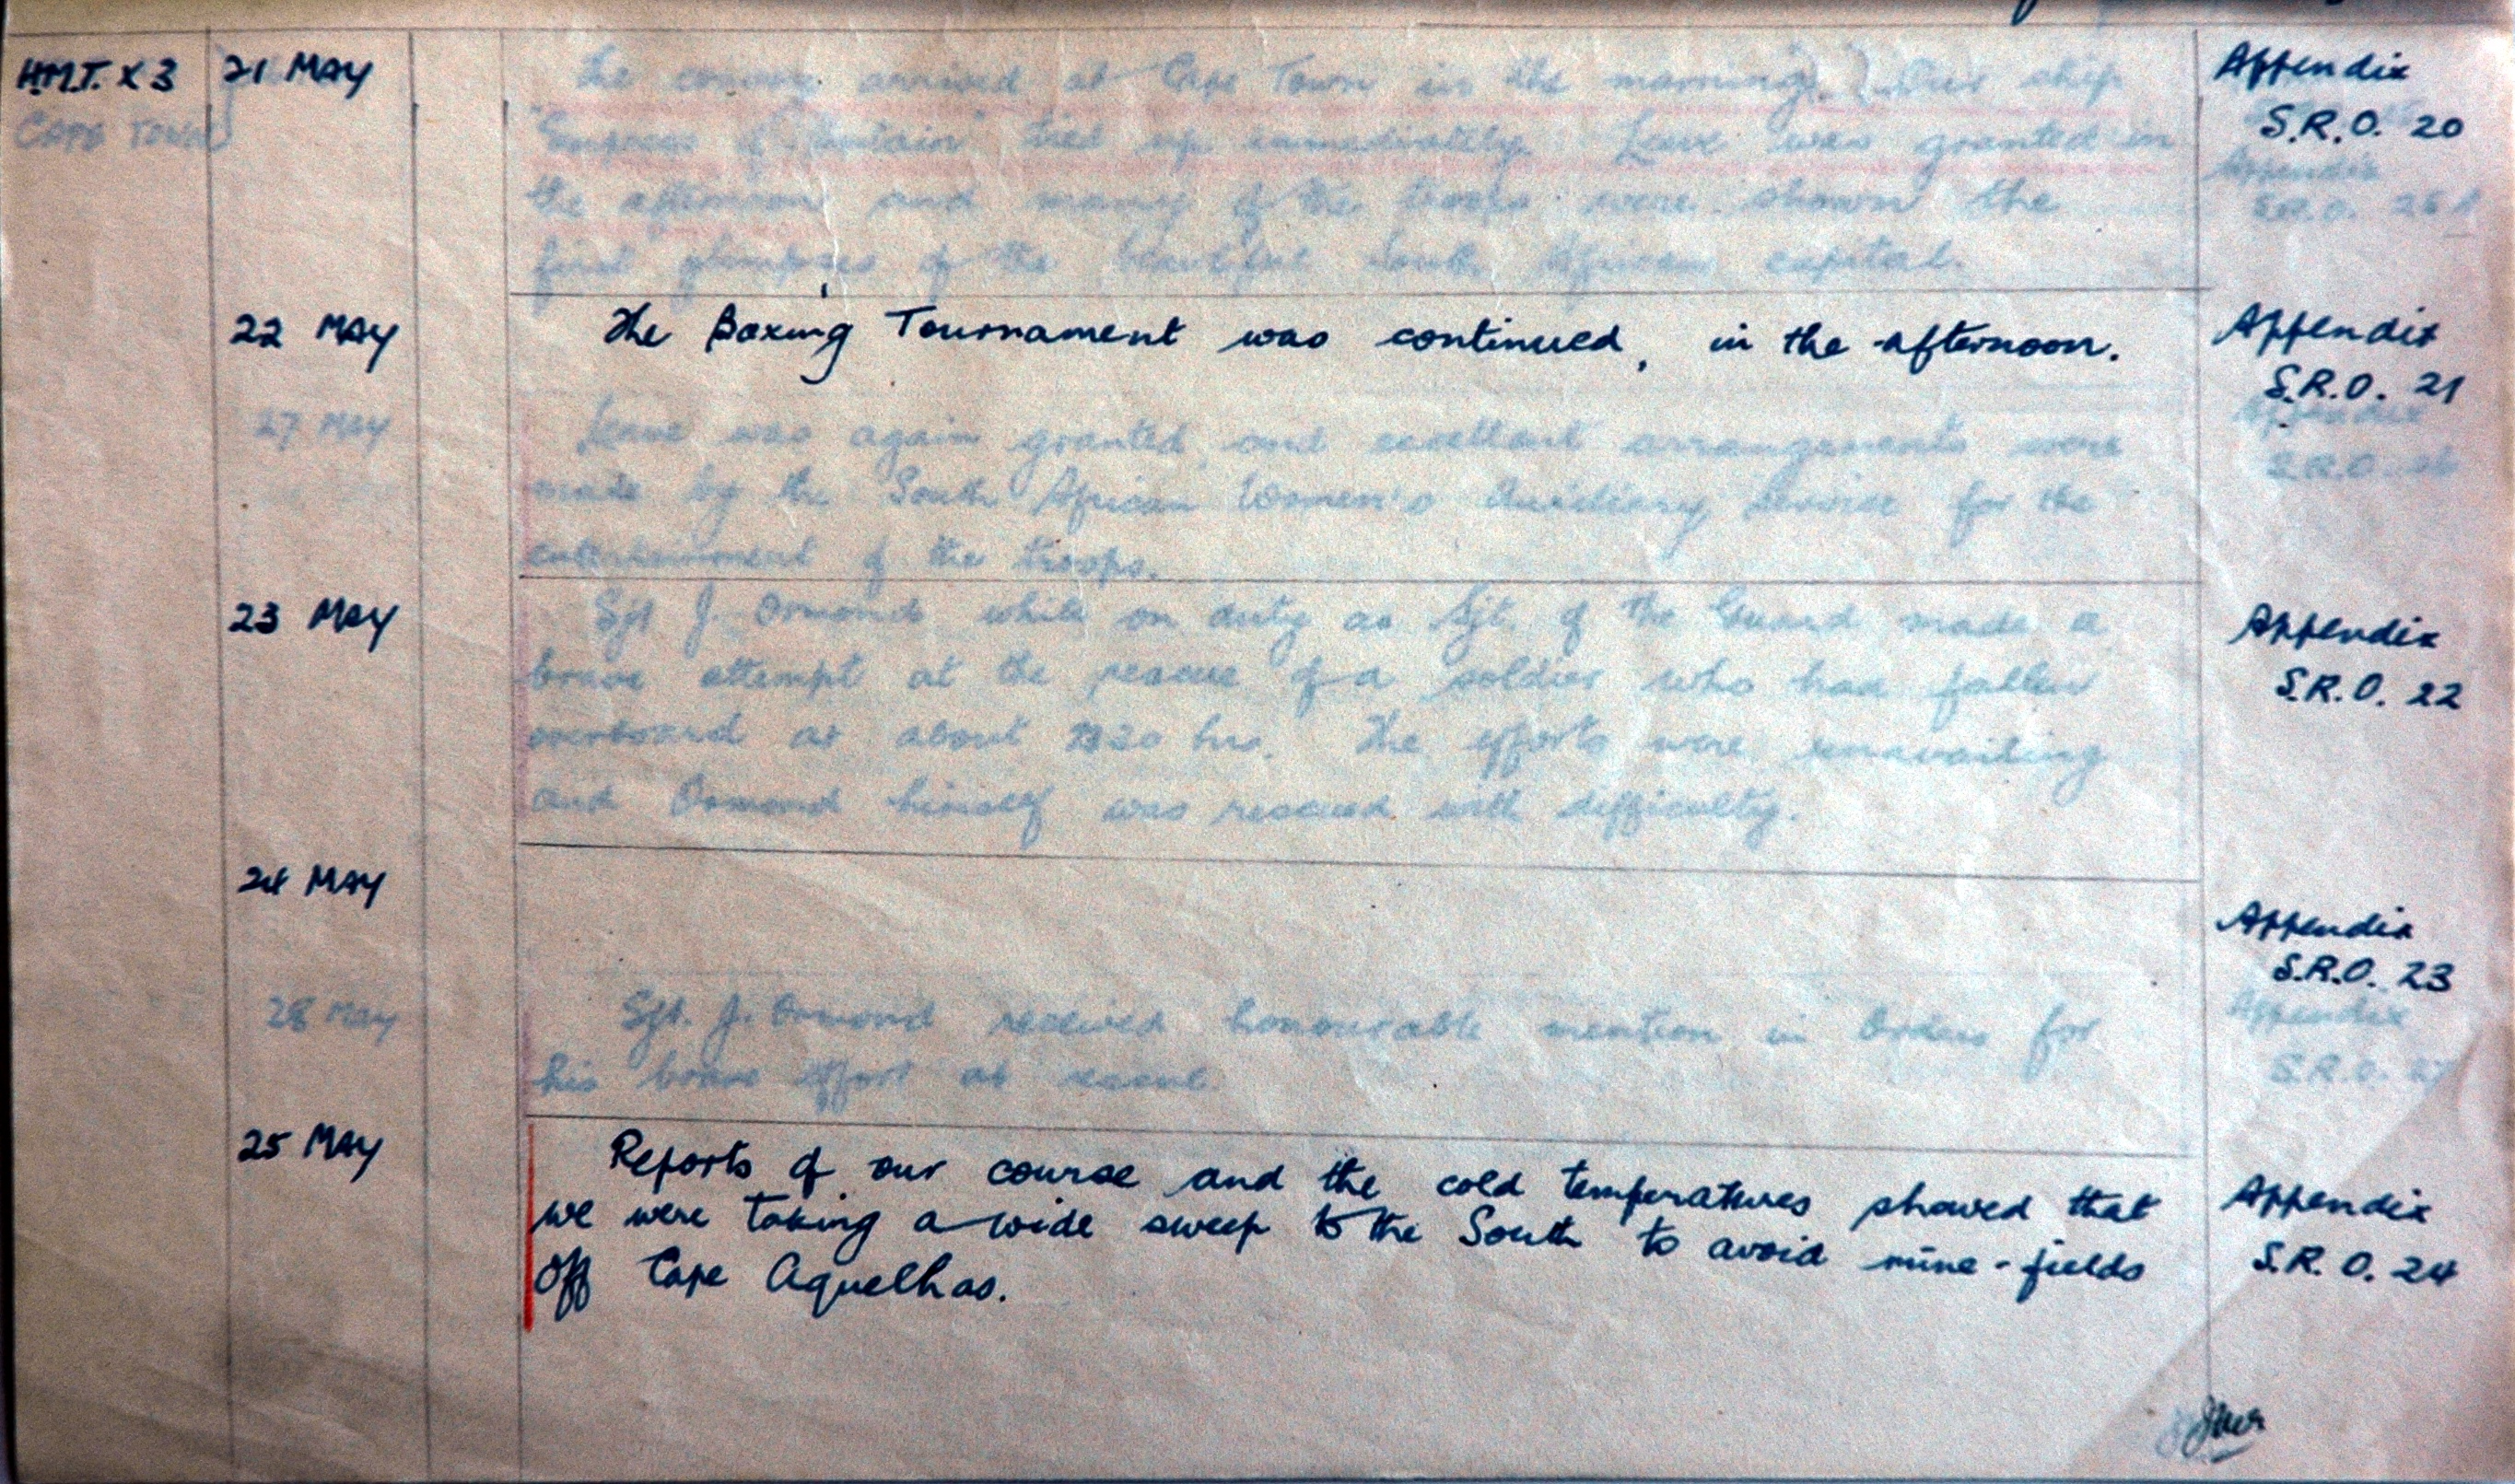 H.M.T. X 3 21 MAY Appendix
S.R.O. 20
CAPE TOWN
The convoy arrived at Cape Town in the morning. Our ship
"Empress of Britain" tied up immediately. Leave was granted in
the afternoon and many of the troops were shown the
first glimpses of the beautiful South African capital.
Appendix
S.R.O. 25
22 MAY The Boxing Tournament was continued, in the afternoon. Appendix
S.R.O. 21
27 May Leave was again granted, and excellent arrangements were
made by the South African Women's Auxiliary Service for the
entertainment of the troops.
Appendix
S.R.O. 26
23 MAY Appendix
S.R.O. 22
Sjt J. Ormond while on duty as Sjt. of the Guard made a
brave attempt at the rescue of a soldier who had fallen
overboard at about hrs. The efforts were unavailing
and Ormond himself was rescued with difficulty.
24 MAY Appendix
S.R.O. 23
28 May Sjt. J. Ormond received honourable mention in Orders for
his brave effort at rescue.
Appendix
S.R.O. 27
25 MAY Reports of our course and the cold temperatures showed that
we were taking a wide sweep to the South to avoid mine-fields
off Cape Aquelhas.
Appendix
S.R.O. 24